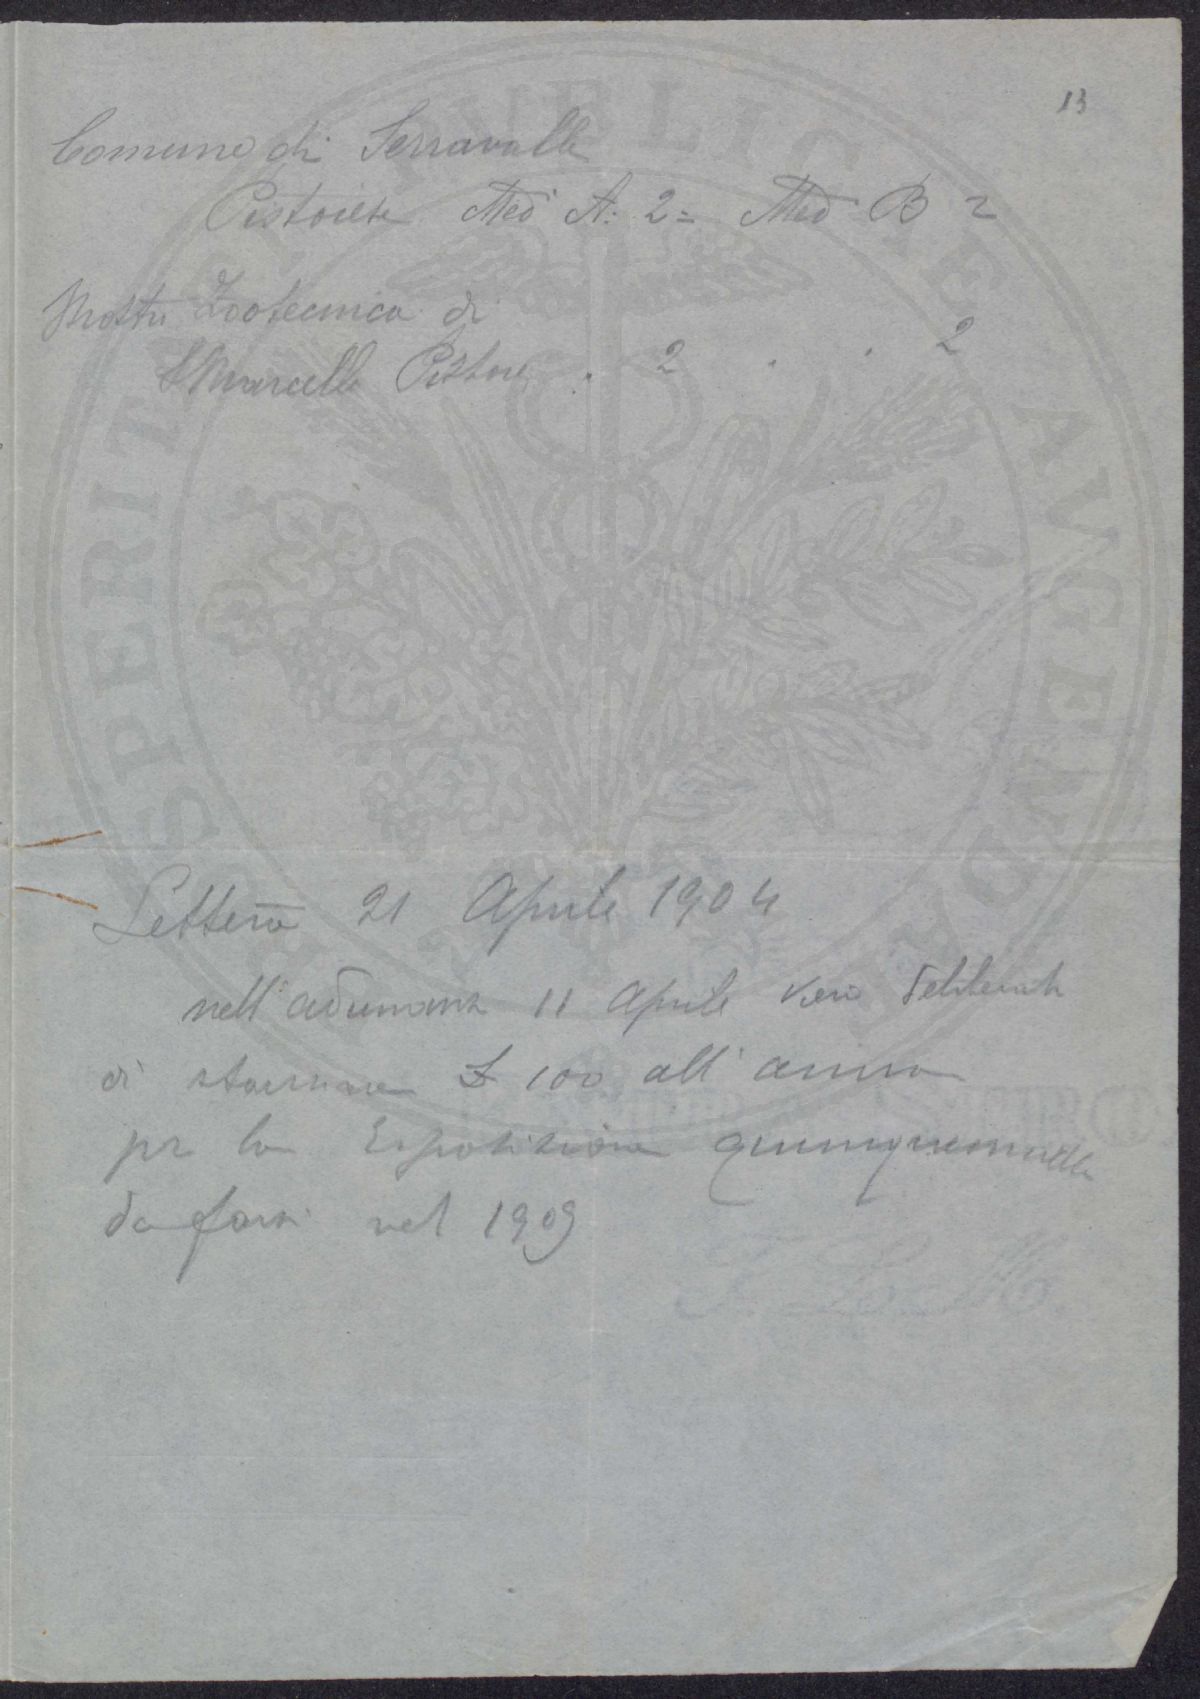 13
Comune di Serravalle
Pistoiese Med A. 2 = Med B 2
Mostra Zootecnica di
S Marcello Pistoie . 2 . . 2
Lettera 21 Aprile 1904
nell'adunanza 11 Aprile deliberato
di £ 100 all'anno
per la Esposizione quinquennale
da farsi nel 1909
PROSPERITATI PVBLICAE AVGENDAE